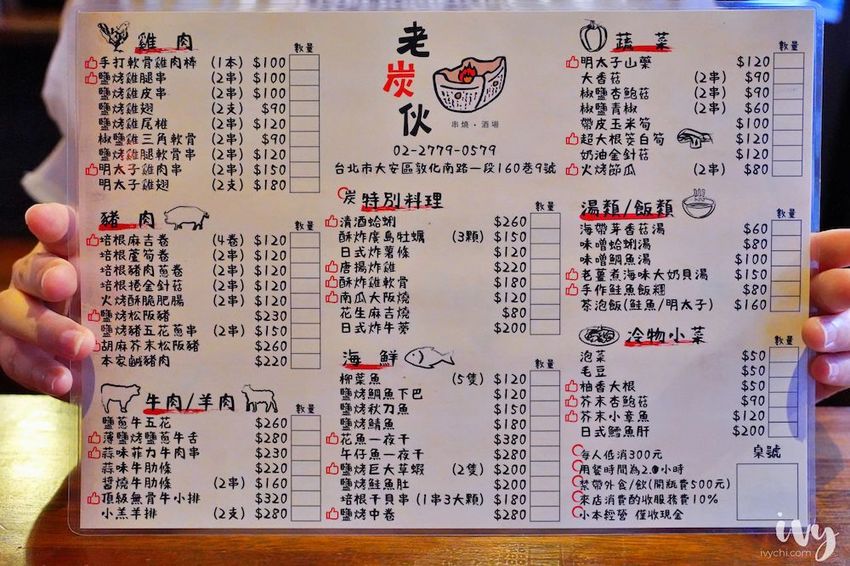 雞肉
數量
手打軟骨雞肉棒 (1本) $100
鹽烤雞腿串 (2串) $100
鹽烤雞皮串 (2串) $100
鹽烤雞翅 (2支) $90
鹽烤雞尾椎 (2串) $120
椒鹽雞三角軟骨 (2串) $100
鹽烤雞腿軟骨串 (2串) $120
明太子雞肉串 (2串) $150
明太子雞翅 (2支) $180
豬肉
數量
培根麻吉卷 (4卷) $120
培根蘆筍卷 (2串) $120
培根豬肉蔥卷 (2串) $120
培根捲金針菇 (2串) $120
火烤酥脆肥腸 (2串) $120
鹽烤松阪豬 $230
鹽烤豬五花蔥串 (2串) $150
胡麻芥末松阪豬 $260
本家鹹豬肉 $220
牛肉/羊肉
數量
鹽蔥牛五花 $260
薄鹽烤鹽蔥牛舌 $280
蒜味菲力牛肉串 $230
蒜味牛肋條 $220
醬燒牛肋條 (2串) $160
頂級無骨牛小排 $320
小羔羊排 (2支) $280
老炭伙
串燒·酒場
02-2779-0579
台北市大安區敦化南路一段160巷9號
炭特別料理
數量
清酒蛤蜊 $260
酥炸廣島牡蠣 (3顆) $150
日式炸薯條 $120
唐揚炸雞 $220
酥炸雞軟骨 $180
南瓜大阪燒 $210
花生麻吉燒 $90
日式炸牛蒡 $200
海鮮
數量
柳葉魚 (5隻) $120
鹽烤鯛魚下巴 $120
鹽烤秋刀魚 $150
鹽烤鯖魚 $180
花魚一夜干 $380
午仔魚一夜干 $280
鹽烤巨大草蝦 (2隻) $200
鹽烤鮭魚肚 $210
培根干貝串 (1串3大顆) $180
鹽烤中卷 $280
蔬菜
數量
明太子山藥 $120
大香菇 (2串) $90
椒鹽杏鮑菇 (2串) $90
椒鹽青椒 (2串) $60
帶皮玉米筍 $100
超大根筊白筍 $100
奶油金針菇 $90
火烤節瓜 (2串) $80
湯類/飯類
數量
海帶芽香菇湯 $60
味噌蛤蜊湯 $80
味噌鯛魚湯 $100
老薑煮海味大奶貝湯 $150
手作鮭魚飯糰 $80
茶泡飯(鮭魚/明太子) $160
冷物小菜
數量
泡菜 $50
毛豆 $50
柚香大根 $50
芥末杏鮑菇 $90
芥末小章魚 $120
日式鱈魚肝 $200
每人低消300元
用餐時間為2.0小時
禁帶外食/飲(開瓶費500元)
來店消費酌收服務費10%
小本經營 僅收現金
桌號
ivy
ivychi.com